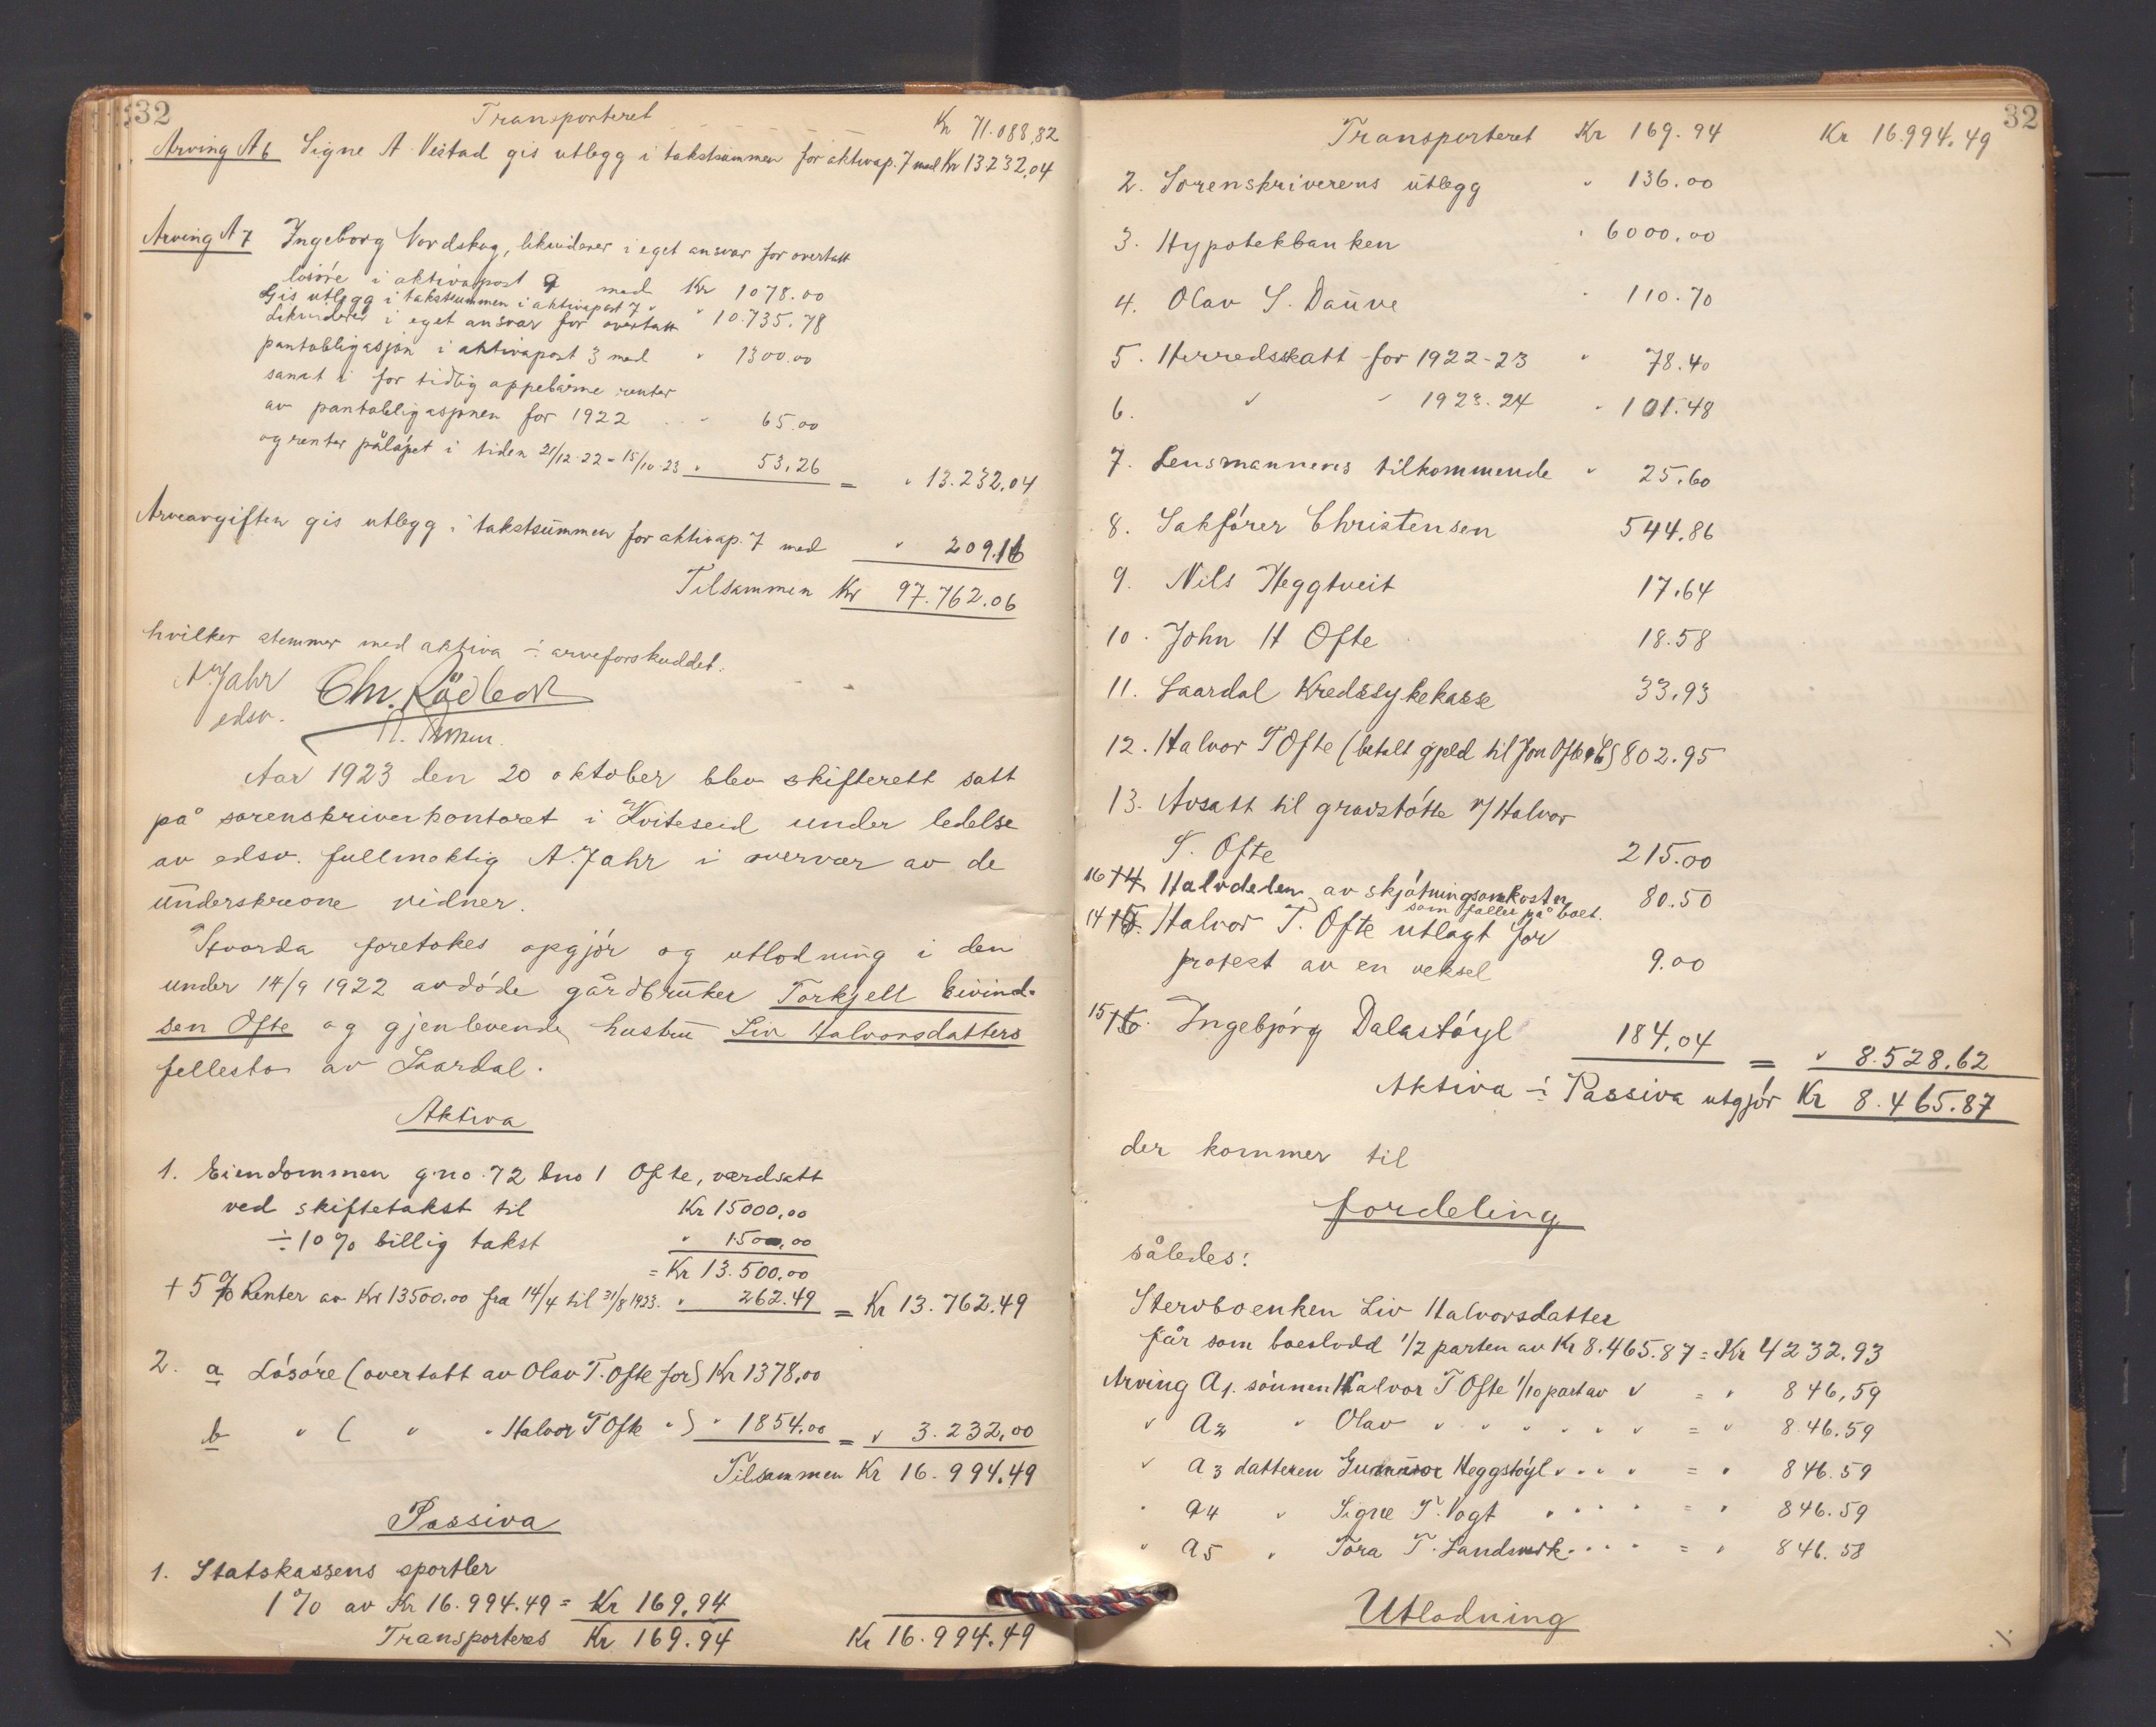 32
Transporteret Kr 71.088,82
Arving A6 Signe A. Vestad gis utlegg i takstsummen for aktivap. 7 med Kr 13232,04
Arving A7 Ingeborg Nordskog, likviderer i eget ansvar for overtatt
løsøre i aktivapost 9 med Kr 1078.00
Gis utlegg i takstsummen i aktivapost 7 " " 10.735.78
Likviderer i eget ansvar for overtatt
pantobligasjon i aktivapost 3 med " 1300.00
samt i for tidlig oppebårne renter
av pantobligasjonen for 1922 . . " 65.00
og renter påløpet i tiden 21/12-22 - 15/10-23 " 53,26 = " 13.232,04
Arveavgiften gis utlegg i takstsummen for aktivap. 7 med " 209.16
Tilsammen Kr 97.762.06
hvilket stemmer med aktiva ÷ arveforskuddet.
A. Jahr Chr. Rödleck
edsv.
Aar 1923 den 20 oktober blev skifterett satt
på sorenskriverkontoret i Kviteseid under ledelse
av edsv. fullmektig A. Jahr i overvær av de
underskrevne vidner.
Hvorda foretokes opgjør og utlodning i den
under 14/9 1922 avdøde gårdbruker Torkjell Eivind-
sen Ofte og gjenlevende hustru Liv Halvorsdatters
fellesbo av Laardal.
Aktiva
1. Eiendommen g.no. 72 bno 1 Ofte, værdsatt
ved skiftetakst til Kr 15000,00
÷ 10 % billig takst " 1500,00
= Kr 13.500,00
+ 5 % Renter av Kr 13500.00 fra 14/4 til 31/8 1923. " 262.49 = Kr 13.762.49
2. a Løsøre (overtatt av Olav T. Ofte for) Kr 1378,00
b " ( " " Halvor T Ofte " ) " 1854.00 = " 3.232,00
Tilsammen Kr 16.994.49
Passiva
1. Statskassens sportler
1 % av Kr 16.994.49 = Kr 169,94
Transporteres Kr 169.94 Kr 16.994.49
32
Transporteret Kr 169.94 Kr 16.994,49
2. Sorenskriverens utlegg " 136.00
3. Hypotekbanken " 6000,00
4. Olav S. Dauve " 110.70
5. Herredsskatt for 1922-23 " 78.40
6. " " 1923-24 " 101.48
7. Lensmannens tilkommende " 25,60
8. Sakfører Christensen 544.86
9. Nils Heggtveit 17,64
10. John H Ofte 18.58
11. Laardal Kredssykekasse 33,93
12. Halvor T Ofte (betalt gjeld til Jon Ofte) 802.95
13. Avsatt til gravstøtte v/ Halvor
T. Ofte 215.00
16 14. Halvdelen av skjøtningsomkostn. 80.50
som faller på boet.
14 15. Halvor T. Ofte utlagt for
protest av en veksel 9.00
15 16. Ingebjørg Dalastøyl 184,04 = " 8.528,62
Aktiva ÷ Passiva utgjør Kr 8.465.87
der kommer til
fordeling
således:
Stervboenken Liv Halvorsdatter
får som boeslodd 1/2 parten av Kr 8.465.87 = Kr 4232,93
Arving A1. sønnen Halvor T Ofte 1/10 part av " = " 846,59
" A2 " Olav " " " " " " = " 846.59
" A3 datteren Gunnvor Heggstøyl " " " " = " 846.59
" A4 " Signe T. Vogt " " " " = " 846.59
" A5 " Tora T. Landsverk " " " = " 846.58
Utlodning
./.